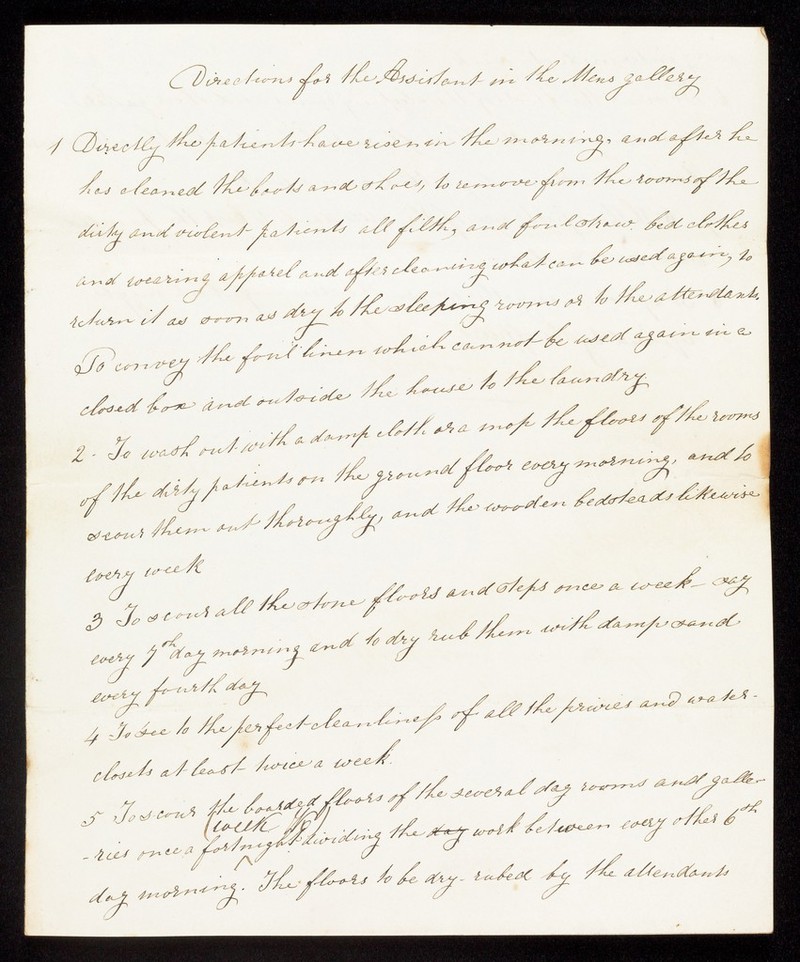 Directions for the Assistant in the Mens gallery
1 Directly the patients have risen in the morning, and after he
has cleaned the boots and shoes, to remove from the rooms of the
dirty and violent patients all filth, and foul straw. bed clothes
and wearing apparel and after cleaning what can be used again, to
return it as soon as dry to the sleeping rooms or to the attendants.
To convey the foul linen which cannot be used again in a
closed box and outside the house to the laundry
2 - To wash out with a damp cloth or a mop the floors of the rooms
of the dirty patients on the ground floor every morning, and to
scour them out thoroughly, and the wooden bedsteads likewise
every week
3 To scour all the stone floors and steps once a week - say
every 7th day morning and to dry rub them with damp sand
every fourth day
4 To see to the perfect cleanliness of all the privies and water-
closets at least twice a week.
5 To scour the boarded floors of the several day rooms and galle-
(week
-ries once a fortnight dividing the day work between every other 6th
day morning. The floors to be dry-rubed by the attendants